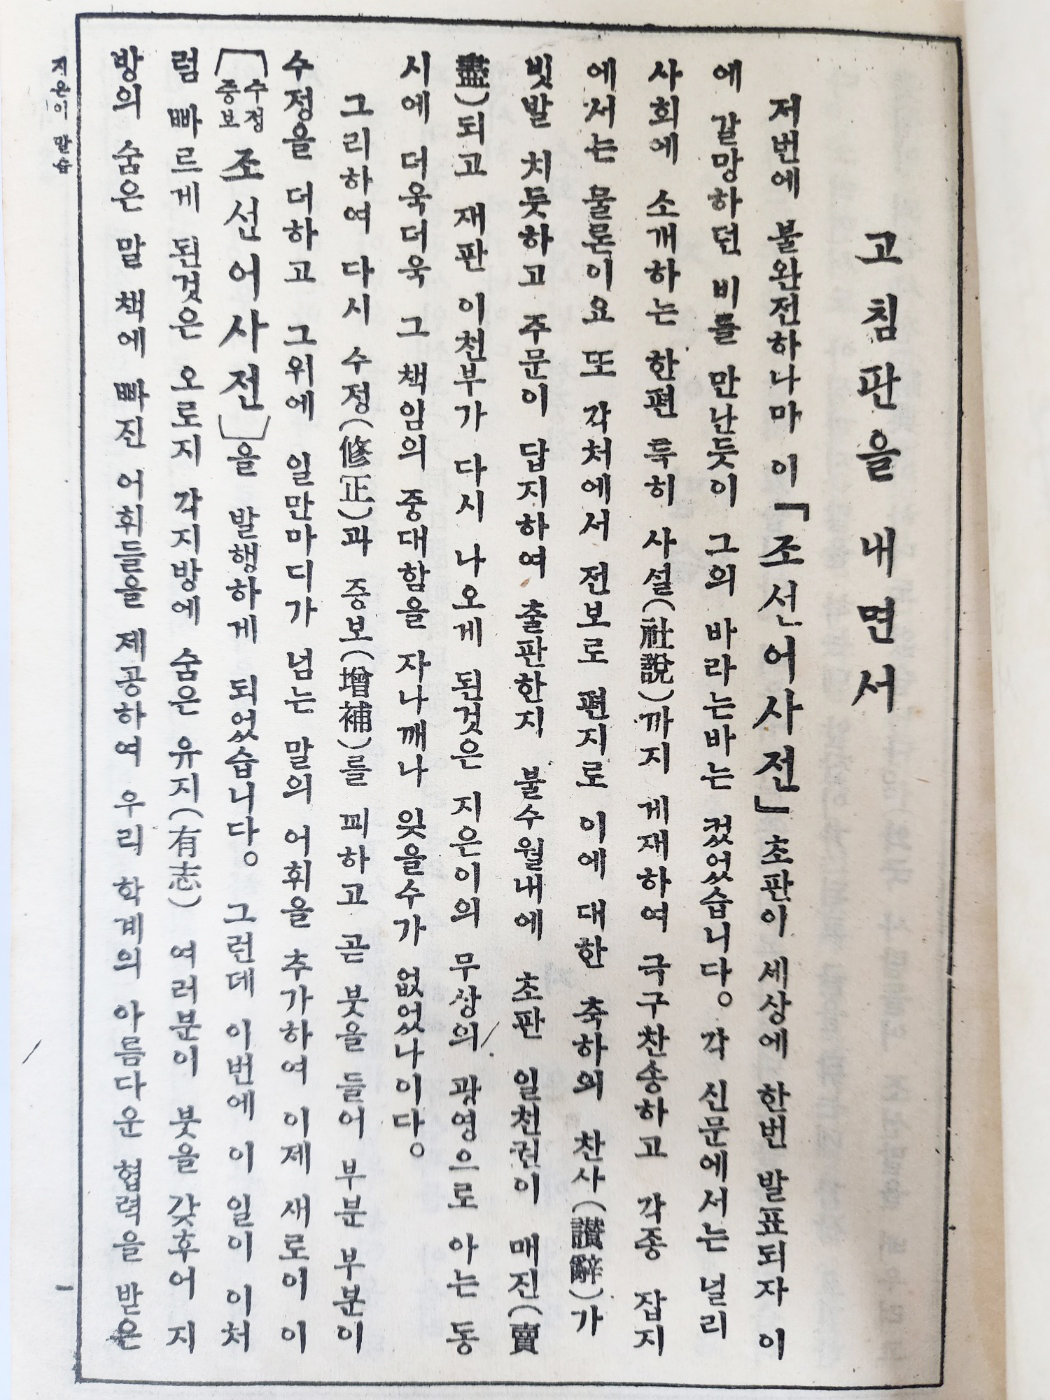 고침판을 내면서
저번에 불완전하나마 이『조선어사전』초판이 세상에 한번 발표되자 이
에 갈망하던 비를 만난듯이 그의 바라는바는 컸었습니다。각 신문에서는 널리
사회에 소개하는 한편 특히 사설(社說)까지 게재하여 극구찬송하고 각종 잡지
에서는 물론이요 또 각처에서 전보로 편지로 이에 대한 축하의 찬사(讃辭)가
빗발 치듯하고 주문이 답지하여 출판한지 불수월내에 초판 일천권이 매진(賣
盡)되고 재판 이천부가 다시 나오게 된것은 지은이의 무상의 광영으로 아는 동
시에 더욱더욱 그 책암의 중대함을 자나깨나 잊을수가 없었나이다。
그리하여 다시 수정(修正)과 증보(增補)를 꾀하고 곧 붓을 들어 부분 부분이
수정을 더하고 그위에 일만마디가 넘는 말의 어휘을 추가하여 이제 새로이 이
〔수정증보 조선어사전〕을 발행하게 되었습니다。그런데 이번에 이 일이 이처
럼 빠르게 된것은 오로지 각지방에 숨은 유지(有志) 여러분이 붓을 갖후어 지
방의 숨은 말 책에 빠진 어휘들을 제공하여 우리 학계의 아름다운 협력을 받은
지은이 말슴
一